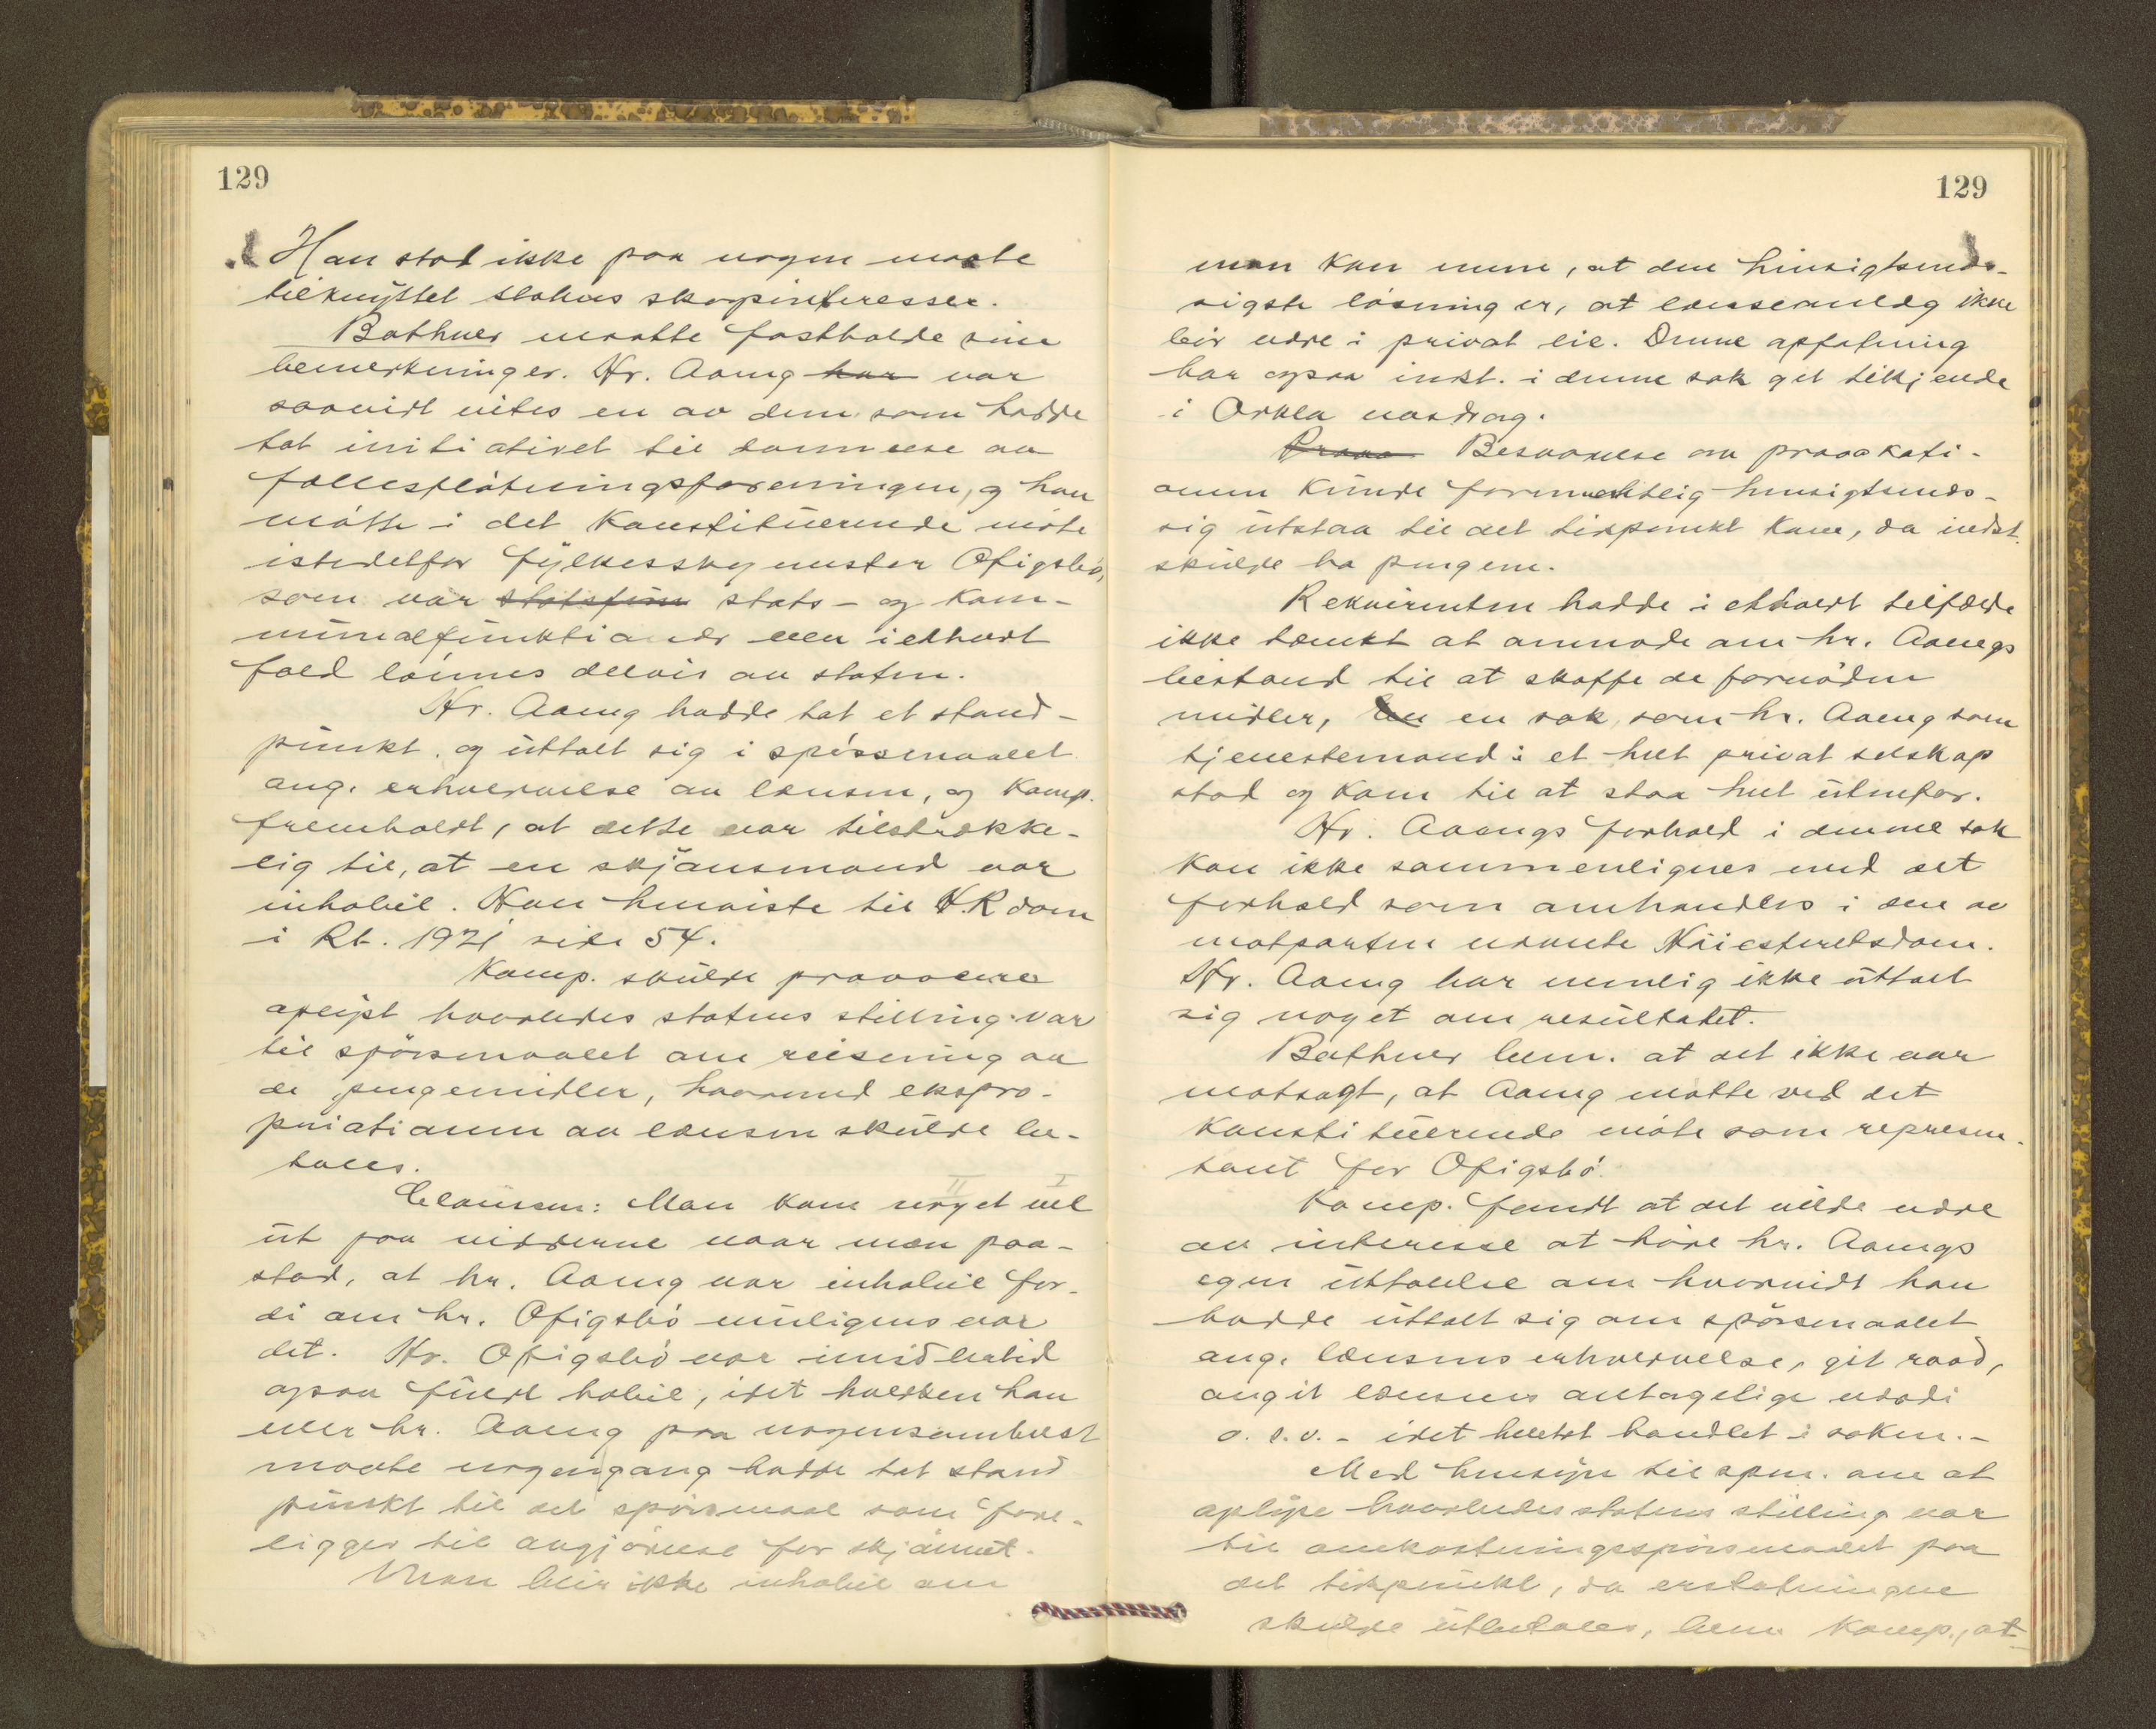 129
Han stod ikke paa nogen maate
tilknyttet statens skogsinteresser.
Bathner maatte fastholde sine
bemerkninger. Hr. Aamg har var
saavidt vites en av dem som hadde
tat initiativet til dannelse av
fellesfløtningsforeningen, og han
møtte i det konstituerende møte
istedetfor fylkesskogmester Ofigsbø,
som var statsfun stats- og kom-
munalfunktionær eller i ethvert
fald lønnes delvis av staten.
Hr. Aamg hadde tat et stand-
punkt og uttalt sig i spørsmaalet
ang. erhvervelse av lensen, og Komp.
fremholdt, at dette var tilstrække-
lig til, at en skjønsmand var
inhabil. Han henviste til H.R dom
i Rt. 1921 side 54.
Komp. skulde provocere
oplyst hvorledes statens stilling var
til spørsmaalet om reisning av
de pengemidler, hvormed ekspro-
priationen av lensen skulde be-
tales.
Claussen: Man kom noget vel
ut paa vidderne naar man paa-
stod, at hr. Aamg var inhabil for-
di om hr. Ofigsbø muligens var
det. Hr. Ofigsbø var imidlertid
ogsaa fuldt habil, idet hverken han
eller hr. Aamg paa nogensomhelst
maate nogengang hadde tat stand
punkt til det spørsmaal som fore-
ligger til avgjørelse for skjønnet.
Man blir ikke inhabil om
129
man kun mene, at den hensigtsmæs-
sigste løsning er, at lenseanlæg ikke
bør være i privat eie. Denne opfatning
har ogsaa inst. i denne sak git tilkjende
i Orkla vasdrag.
Provo Besvarelse av provokati-
onen kunde formentlig hensigtsmæs-
sig utstaa til det tidspunkt kom, da indst.
skulde ha pengene.
Rekvirenten hadde i ethvert tilfælde
ikke tænkt at anmode om hr. Aamgs
bistand til at skaffe de fornødne
midler, en sak som hr. Aamg som
tjenestemand i et helt privat selskap
stod og kom til at staa helt utenfor.
Hr. Aamgs forhold i denne sak
kan ikke sammenlignes med det
forhold som omhandles i den av
motparten nævnte Høiesteretsdom.
Hr. Aamg har nemlig ikke uttalt
sig noget om resultatet.
Bathner bem. at det ikke var
motsagt, at Aamg møtte ved det
konstituerende møte som represen-
tant for Ofigsbø.
Komp. fandt at det vilde være
av interesse at høre hr. Aamgs
egen uttalelse om hvorvidt han
hadde uttalt sig om spørsmaalet
ang. lensens erhvervelse, git raad,
angit lensens antagelige værdi
o. s. v. - idet heletat handlet i saken. -
Med hensyn til spm. om at
oplyse hvorledes statens stilling var
til omkostningsspørsmaalet paa
det tidspunkt, da erstatningene
skulde utbetales, bem Komp., at